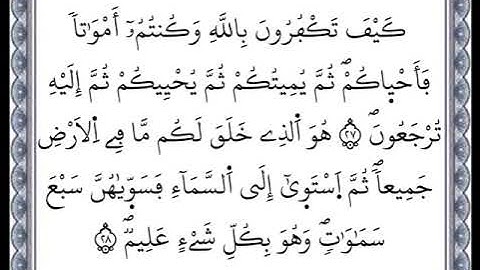 كَيْفَ تَكْفُرُونَ بِاللَّهِ وَكُنتُمُۥٓ أَمْوَٰتاٗ
فَأَحْيٜاكُمْۖ ثُمَّ يُمِيتُكُمْ ثُمَّ يُحْيِيكُمْ ثُمَّ إِلَيْهِ
تُرْجَعُونَۖ ۝٢٧ هُوَ اَ۬لذِے خَلَقَ لَكُم مَّا فِے اِ۬لَارْضِ
جَمِيعاٗۖ ثُمَّ اَ۪سْتَو۪يٰٓ إِلَى اَ۬لسَّمَآءِ فَسَوّ۪يٰهُنَّ سَبْعَ
سَمَٰوَٰتٖۖ وَهُوَ بِكُلِّ شَےْءٍ عَلِيمٞۖ ۝٢٨